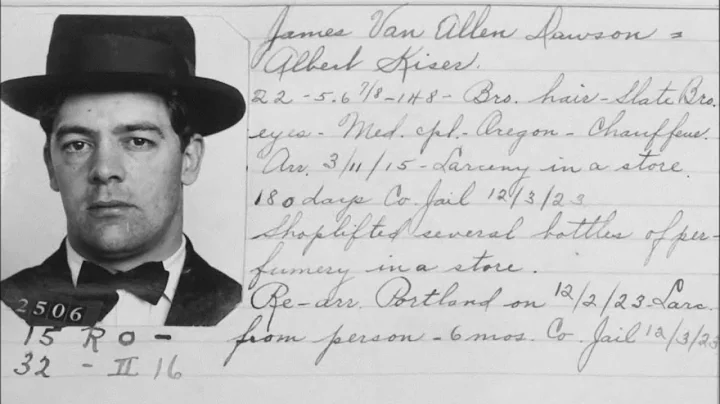 James Van Allen Dawson =
Albert Kiser.
22 - 5.6 7/8 - 148 - Bro. hair - Slate Bro.
eyes - Med. cpl. - Oregon - Chauffeur.
Arr. 3/11/15 - Larceny in a store.
180 days Co. Jail 12/3/23
Shoplifted several bottles of per-
fumery in a store.
Re-arr. Portland on 12/2/23 Larc.
from person - 6 mos. Co. Jail 12/3/23
2506
15 R O -
32 - II 16